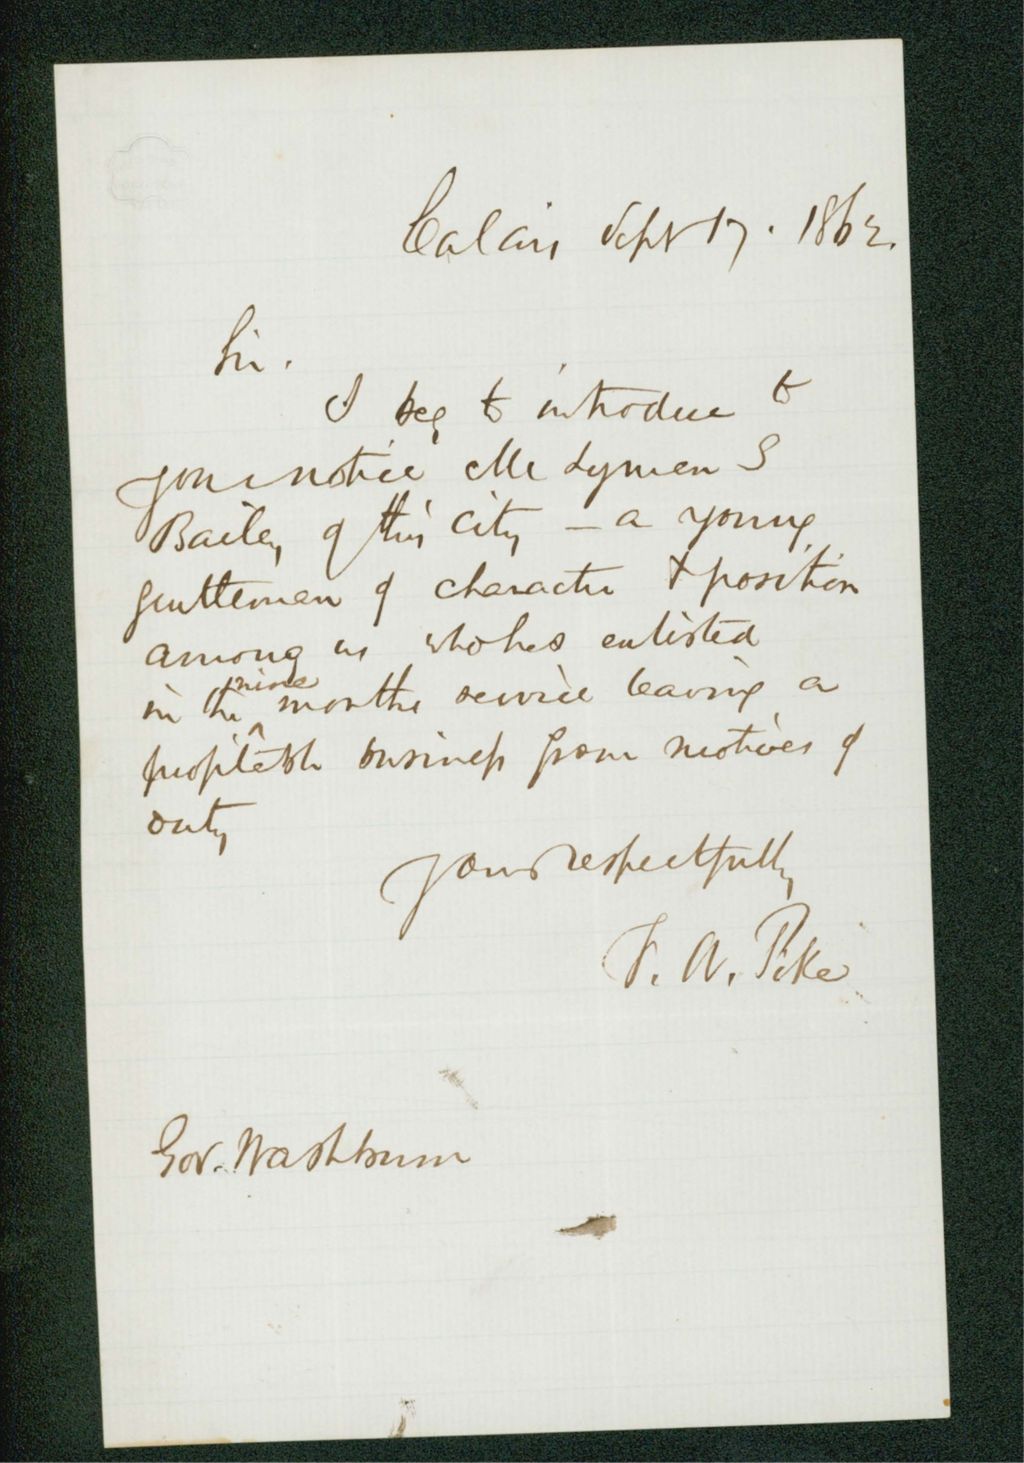 Calais Sept 17. 1862.
Sir.
I beg to introduce to
your notice Mr Lyman S
Bailey of this city – a young
gentleman of character & position
among us who has enlisted
in the nine months service leaving a
profitable business from motives of
duty
Yours respectfully
F. A. Pike
Gov. Washburn